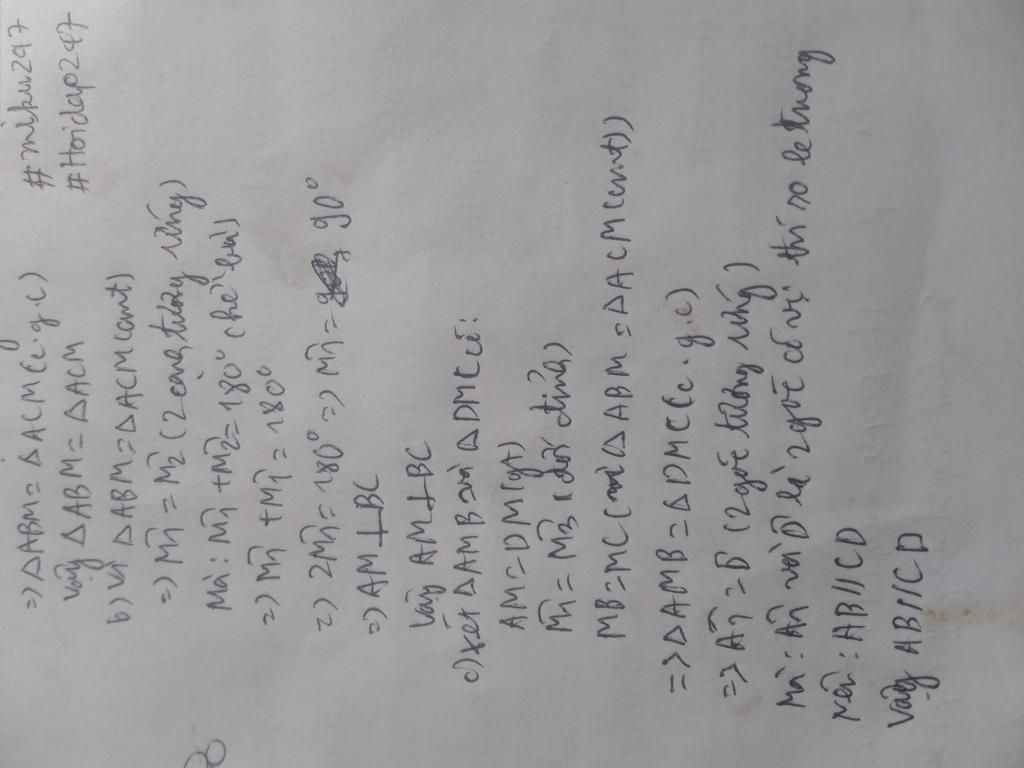 #mikuu247
#Hoidap247
=> ΔABM = ΔACM(c.g.c)
Vậy ΔABM = ΔACM
b) Vì ΔABM = ΔACM(cmt)
=> M̂1 = M̂2 (2 tương ứng)
Mà: M̂1 + M̂2 = 180° (kề bù)
=> M̂1 + M̂1 = 180°
=> 2M̂1 = 180° => M̂1 = 90°
=> AM⊥BC
Vậy AM⊥BC
c) Xét ΔAMB và ΔDMC có:
AM = DM(gt)
M̂1 = M̂3 (đối đỉnh)
MB = MC (vì ΔABM = ΔACM(cmt))
=> ΔAMB = ΔDMC(c.g.c)
=> Â1 = D̂ (2 góc tương ứng)
Mà: Â1 và D̂ là 2 góc có vị thí so le trong
nên: AB//CD
Vậy AB//CD